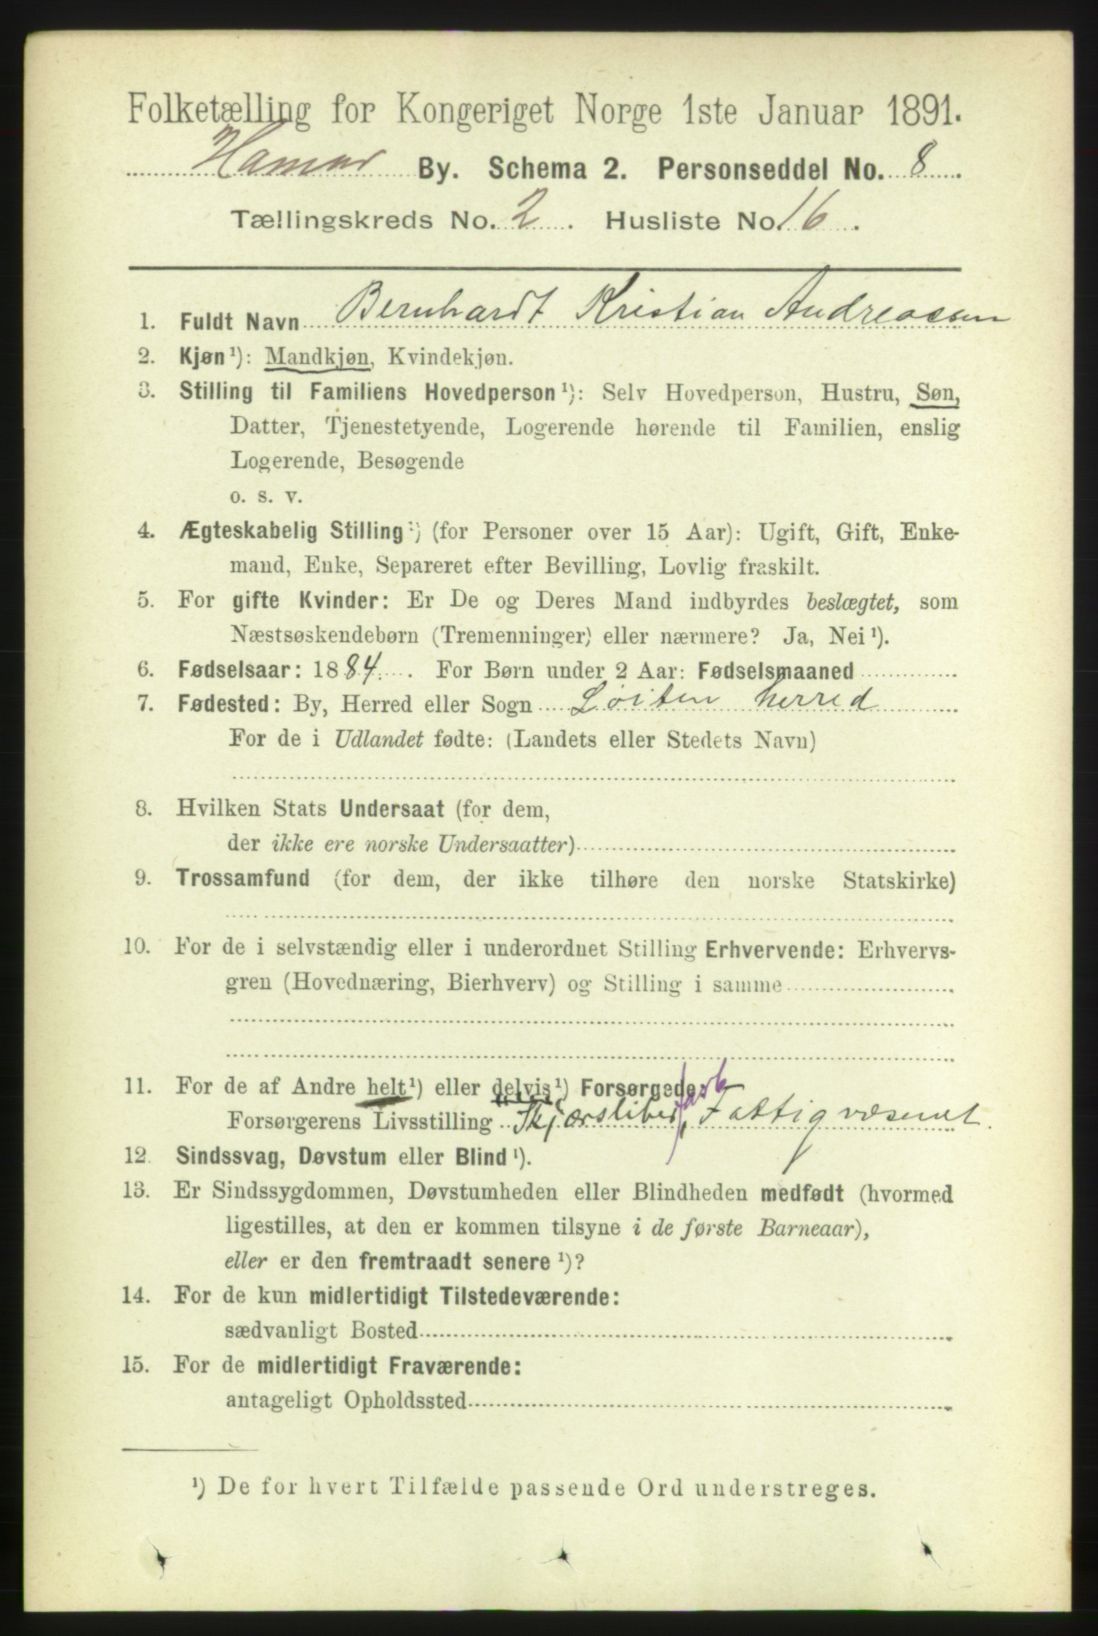 Folketælling for Kongeriget Norge 1ste Januar 1891.
Hamar By. Schema 2. Personseddel No. 8.
Tællingskreds No. 2. Husliste No. 16.
1. Fuldt Navn Bernhardt Kristian Andreassen
2. Kjøn¹): Mandkjøn, Kvindekjøn.
3. Stilling til Familiens Hovedperson¹): Selv Hovedperson, Hustru, Søn,
Datter, Tjenestetyende, Logerende hørende til Familien, enslig
Logerende, Besøgende
o. s. v.
4. Ægteskabelig Stilling¹) (for Personer over 15 Aar): Ugift, Gift, Enke-
mand, Enke, Separeret efter Bevilling, Lovlig fraskilt.
5. For gifte Kvinder: Er De og Deres Mand indbyrdes beslægtet, som
Næstsøskendebørn (Tremenninger) eller nærmere? Ja, Nei¹).
6. Fødselsaar: 1884. For Børn under 2 Aar: Fødselsmaaned
7. Fødested: By, Herred eller Sogn Løiten herred
For de i Udlandet fødte: (Landets eller Stedets Navn)
8. Hvilken Stats Undersaat (for dem,
der ikke ere norske Undersaatter)
9. Trossamfund (for dem, der ikke tilhøre den norske Statskirke)
10. For de i selvstændig eller i underordnet Stilling Erhvervende: Erhvervs-
gren (Hovednæring, Bierhverv) og Stilling i samme
11. For de af Andre helt¹) eller delvis¹) Forsørgede
Forsørgerens Livsstilling Skjærsliber, Fattigvæsenet.
12. Sindssvag, Døvstum eller Blind¹).
13. Er Sindssygdommen, Døvstumheden eller Blindheden medfødt (hvormed
ligestilles, at den er kommen tilsyne i de første Barneaar),
eller er den fremtraadt senere¹)?
14. For de kun midlertidigt Tilstedeværende:
sædvanligt Bosted
15. For de midlertidigt Fraværende:
antageligt Opholdssted
¹) De for hvert Tilfælde passende Ord understreges.